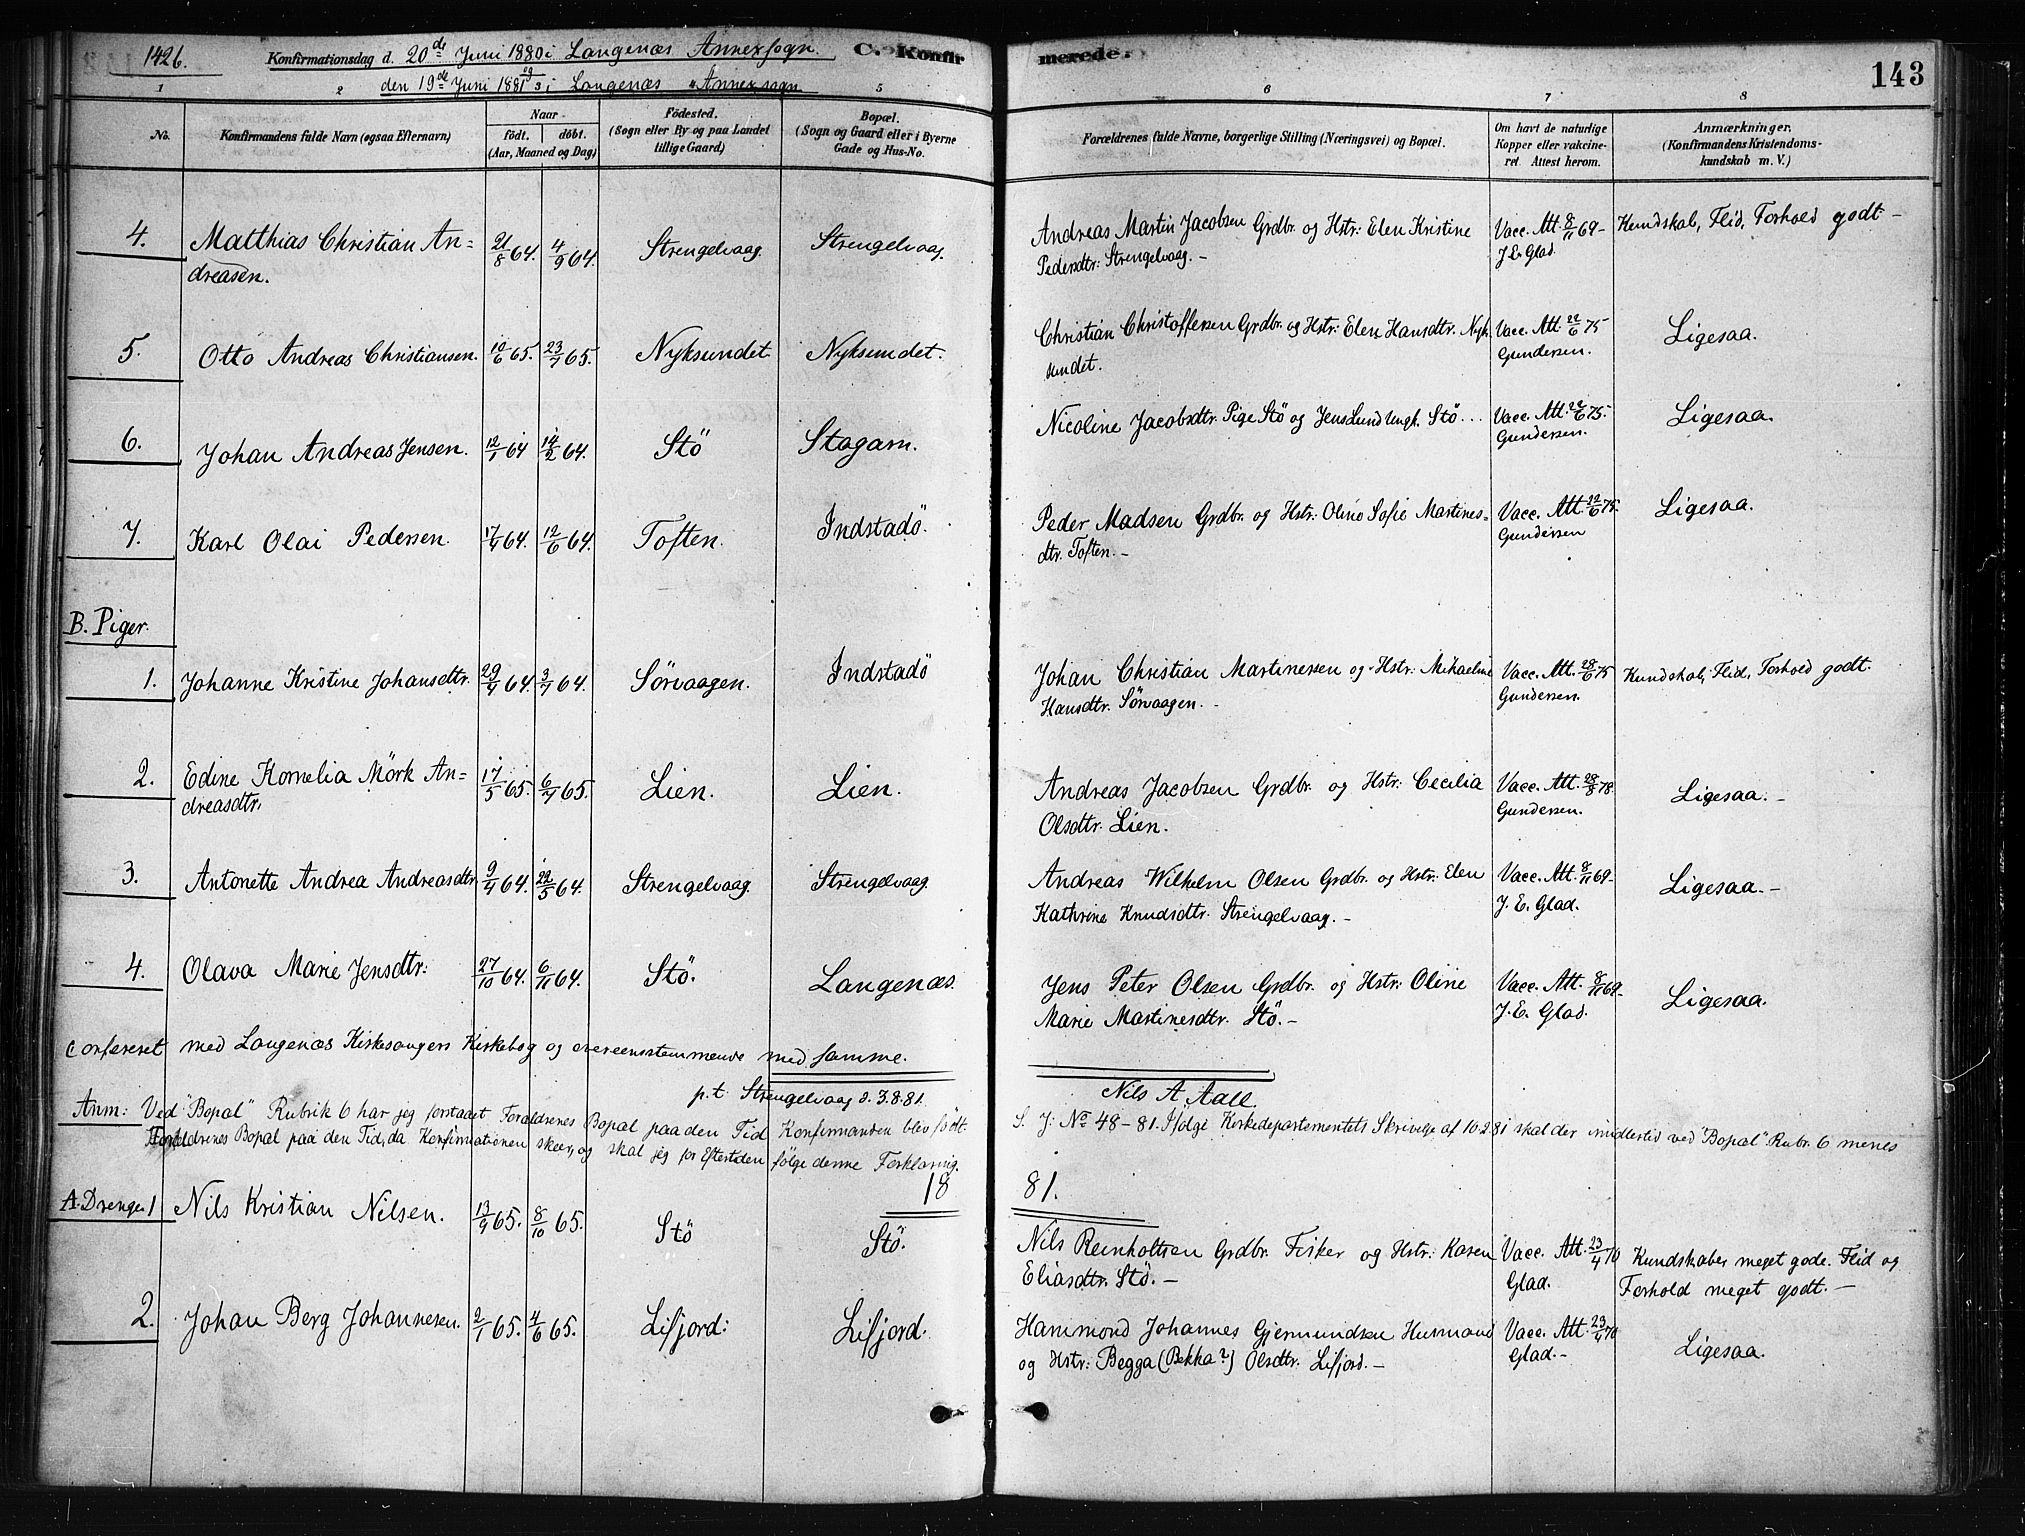 142b.
Konfirmationsdag d. 20de Juni 1880 i Langenæs Annexsogn.
den 19de Juni 1881 i Langenæs Annexsogn
C. Konfirmerede.
143
1 2 5 6 7 8
No.
Konfirmandens fulde Navn (ogsaa Efternavn)
Naar
født. døbt.
(Aar, Maaned og Dag)
Födested.
(Sogn eller By og paa Landet
tillige Gaard)
Bopæl.
(Sogn og Gaard eller i Byerne
Gade og Hus-No.
Forældrenes fulde Navne, borgerlige Stilling (Næringsvei) og Bopæl.
Om havt de naturlige
Kopper eller vakcine-
ret. Attest herom.
Anmærkninger.
(Konfirmandens Kristendoms-
kundskab m. V.)
4. Matthias Christian An- 21/8 64. 4/9 64. Strengelvaag. Strengelvaag. Andreas Martin Jacobsen Grdbr. og Hstr. Elen Kristine Vacc. Att. 8/11 69- Kundskab, Flid, Forhold godt -
dreasen. Pedersdtr: Strengelvaag. - J. E. Glad.
5. Otto Andreas Christiansen. 10/6 65. 23/7 65. Nyksundet. Nyksundet. Christian Christoffersen Grdbr. og Hstr: Elen Hansdtr. Nyk Vacc. Att. 22/6 75 Ligesaa.
sundet. Gundersen.
6. Johan Andreas Jensen. 12/1 64 14/2 64. Stö Stagarn. Nicoline Jacobsdtr. Pige Stö og Jens Lund Ungk. Stö... Vacc. Att. 22/6 75. Ligesaa.
Gundersen.
7. Karl Olai Pedersen. 17/4 64. 12/6 64. Toften. Indstadö. Peder Madsen Grdbr. og Hstr: Oline Sofie Martines- Vacc. Att. 22/6 75. Ligesaa.
dtr. Toften. - Gundersen
B. Piger.
1. Johanne Kristine Johansdtr. 29/4 64. 3/7 64. Sörvaagen. Indstadö Johan Christian Martinersen og Hstr: Mikaeline Vacc. Att. 28/6 75 Kundskab, Flid, Forhold godt.
Hansdtr. Sörvaagen. - Gundersen.
2. Edine Kornelia Mörk An- 17/5 65. 6/7 65. Lien. Lien. Andreas Jacobsen Grdbr. og Hstr: Cecilia Vacc. Att. 28/8 78. Ligesaa. -
dreasdtr. Olsdtr. Lien. Gundersen.
3. Antonette Andrea Andreasdtr. 9/4 64. 22/5 64. Strengelvaag. Strengelvaag. Andreas Wilhelm Olsen Grdbr. og Hstr: Elen Vacc. Att. 8/11 69- Ligesaa. -
Kathrine Knudsdtr. Strengelvaag. - J. E. Glad.
4. Olava Marie Jensdtr: 27/10 64. 6/11 64. Stö. Langenæs. Jens Peter Olsen Grdbr. og Hstr: Oline Vacc. Att. 8/11 69- Ligesaa.
Marie Martinesdtr. Stö. - J. E. Glad.
Confereret med Langenæs Kirkesangers Kirkebog og overeensstemmende med samme.
p.t. Strengelvaag d. 3.8.81. Nils A. Aall.
Anm: Ved "Bopæl" Rubrik 6 har jeg forstaaet Forældrenes Bopæl paa den Tid Konfirmanden blev födt.
S. J. No 48-81. Ifølge Kirkedepartementets Skrivelse af 10 2 81 skal der imidlertid ved "Bopæl" Rubr. 6 menes
Forældrenes Bopæl paa den Tid, da Konfirmationen skeer, og skal jeg for Eftertiden følge denne Forklaring.
18 81.
A. Drenge 1 Nils Kristian Nilsen. 13/9 65. 8/10 65. Stö Stö. Nils Reinholtsen Grdbr. Fisker og Hstr: Karen Vacc. Att. 23/4 70 Kundskaber meget gode. Flid og
Eliasdtr. Stö. - Glad. Forhold meget godt. -
2. Johan Berg Johannesen. 2/1 65. 4/6 65. Lifjord: Lifjord. Hammond Johannes Gjermundsen Husmand Vacc. Att. 23/4 70 Ligesaa.
og Hstr: Begga (Bekka?) Olsdtr. Lifjord. - Glad. -